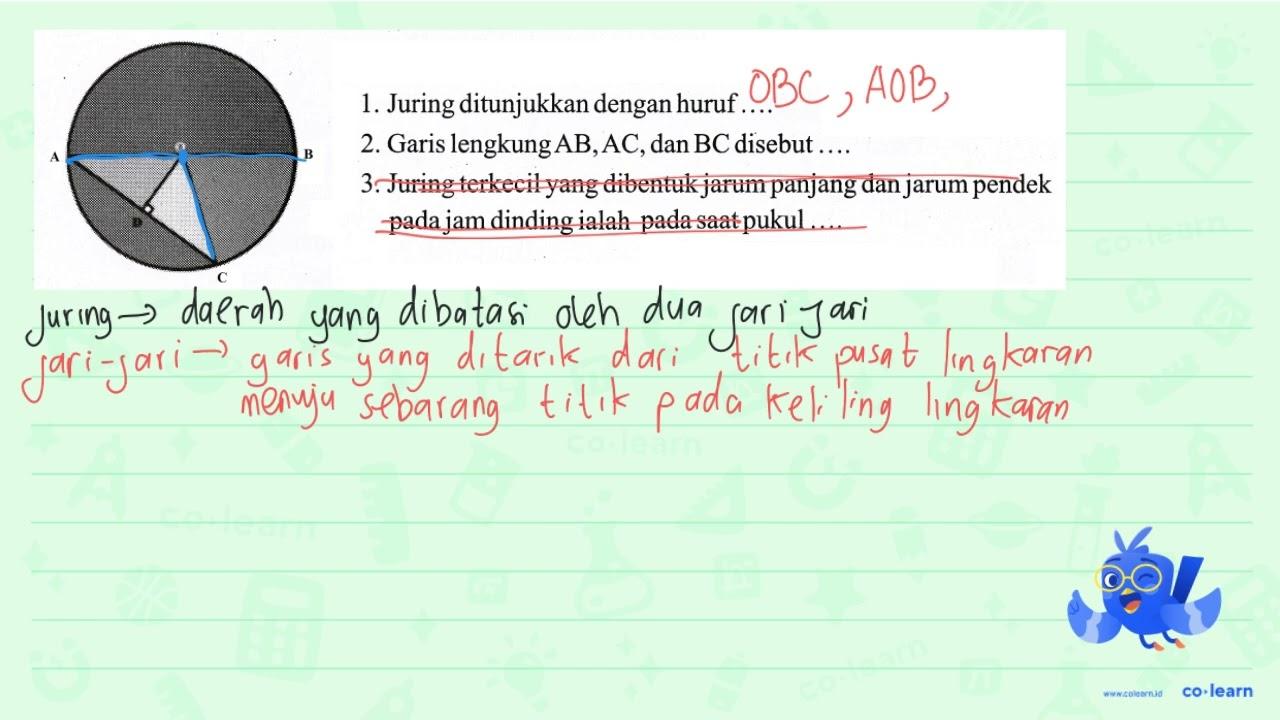 A
O
B
D
C
1. Juring ditunjukkan dengan huruf .... OBC, AOB,
2. Garis lengkung AB, AC, dan BC disebut ....
3. Juring terkecil yang dibentuk jarum panjang dan jarum pendek
pada jam dinding ialah pada saat pukul ....
Juring → daerah yang dibatasi oleh dua jari-jari
jari-jari → garis yang ditarik dari titik pusat lingkaran
menuju sebarang titik pada keliling lingkaran
co·learn
co·learn
co·learn
co·learn
www.colearn.id co·learn